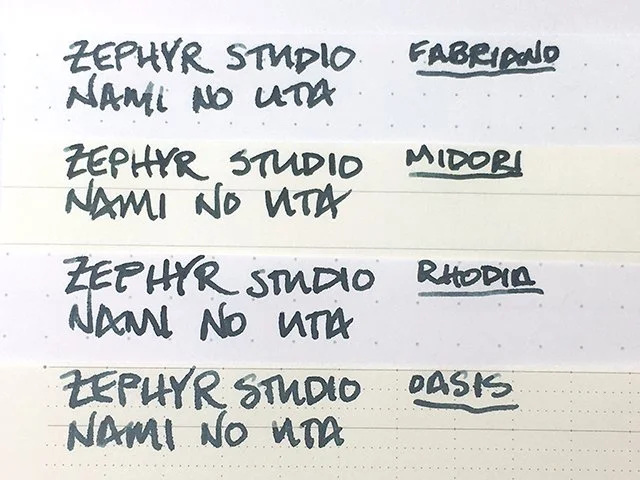 ZEPHYR STUDIO FABRIANO
NAMI NO UTA
ZEPHYR STUDIO MIDORI
NAMI NO UTA
ZEPHYR STUDIO RHODIA
NAMI NO UTA
ZEPHYR STUDIO OASIS
NAMI NO UTA